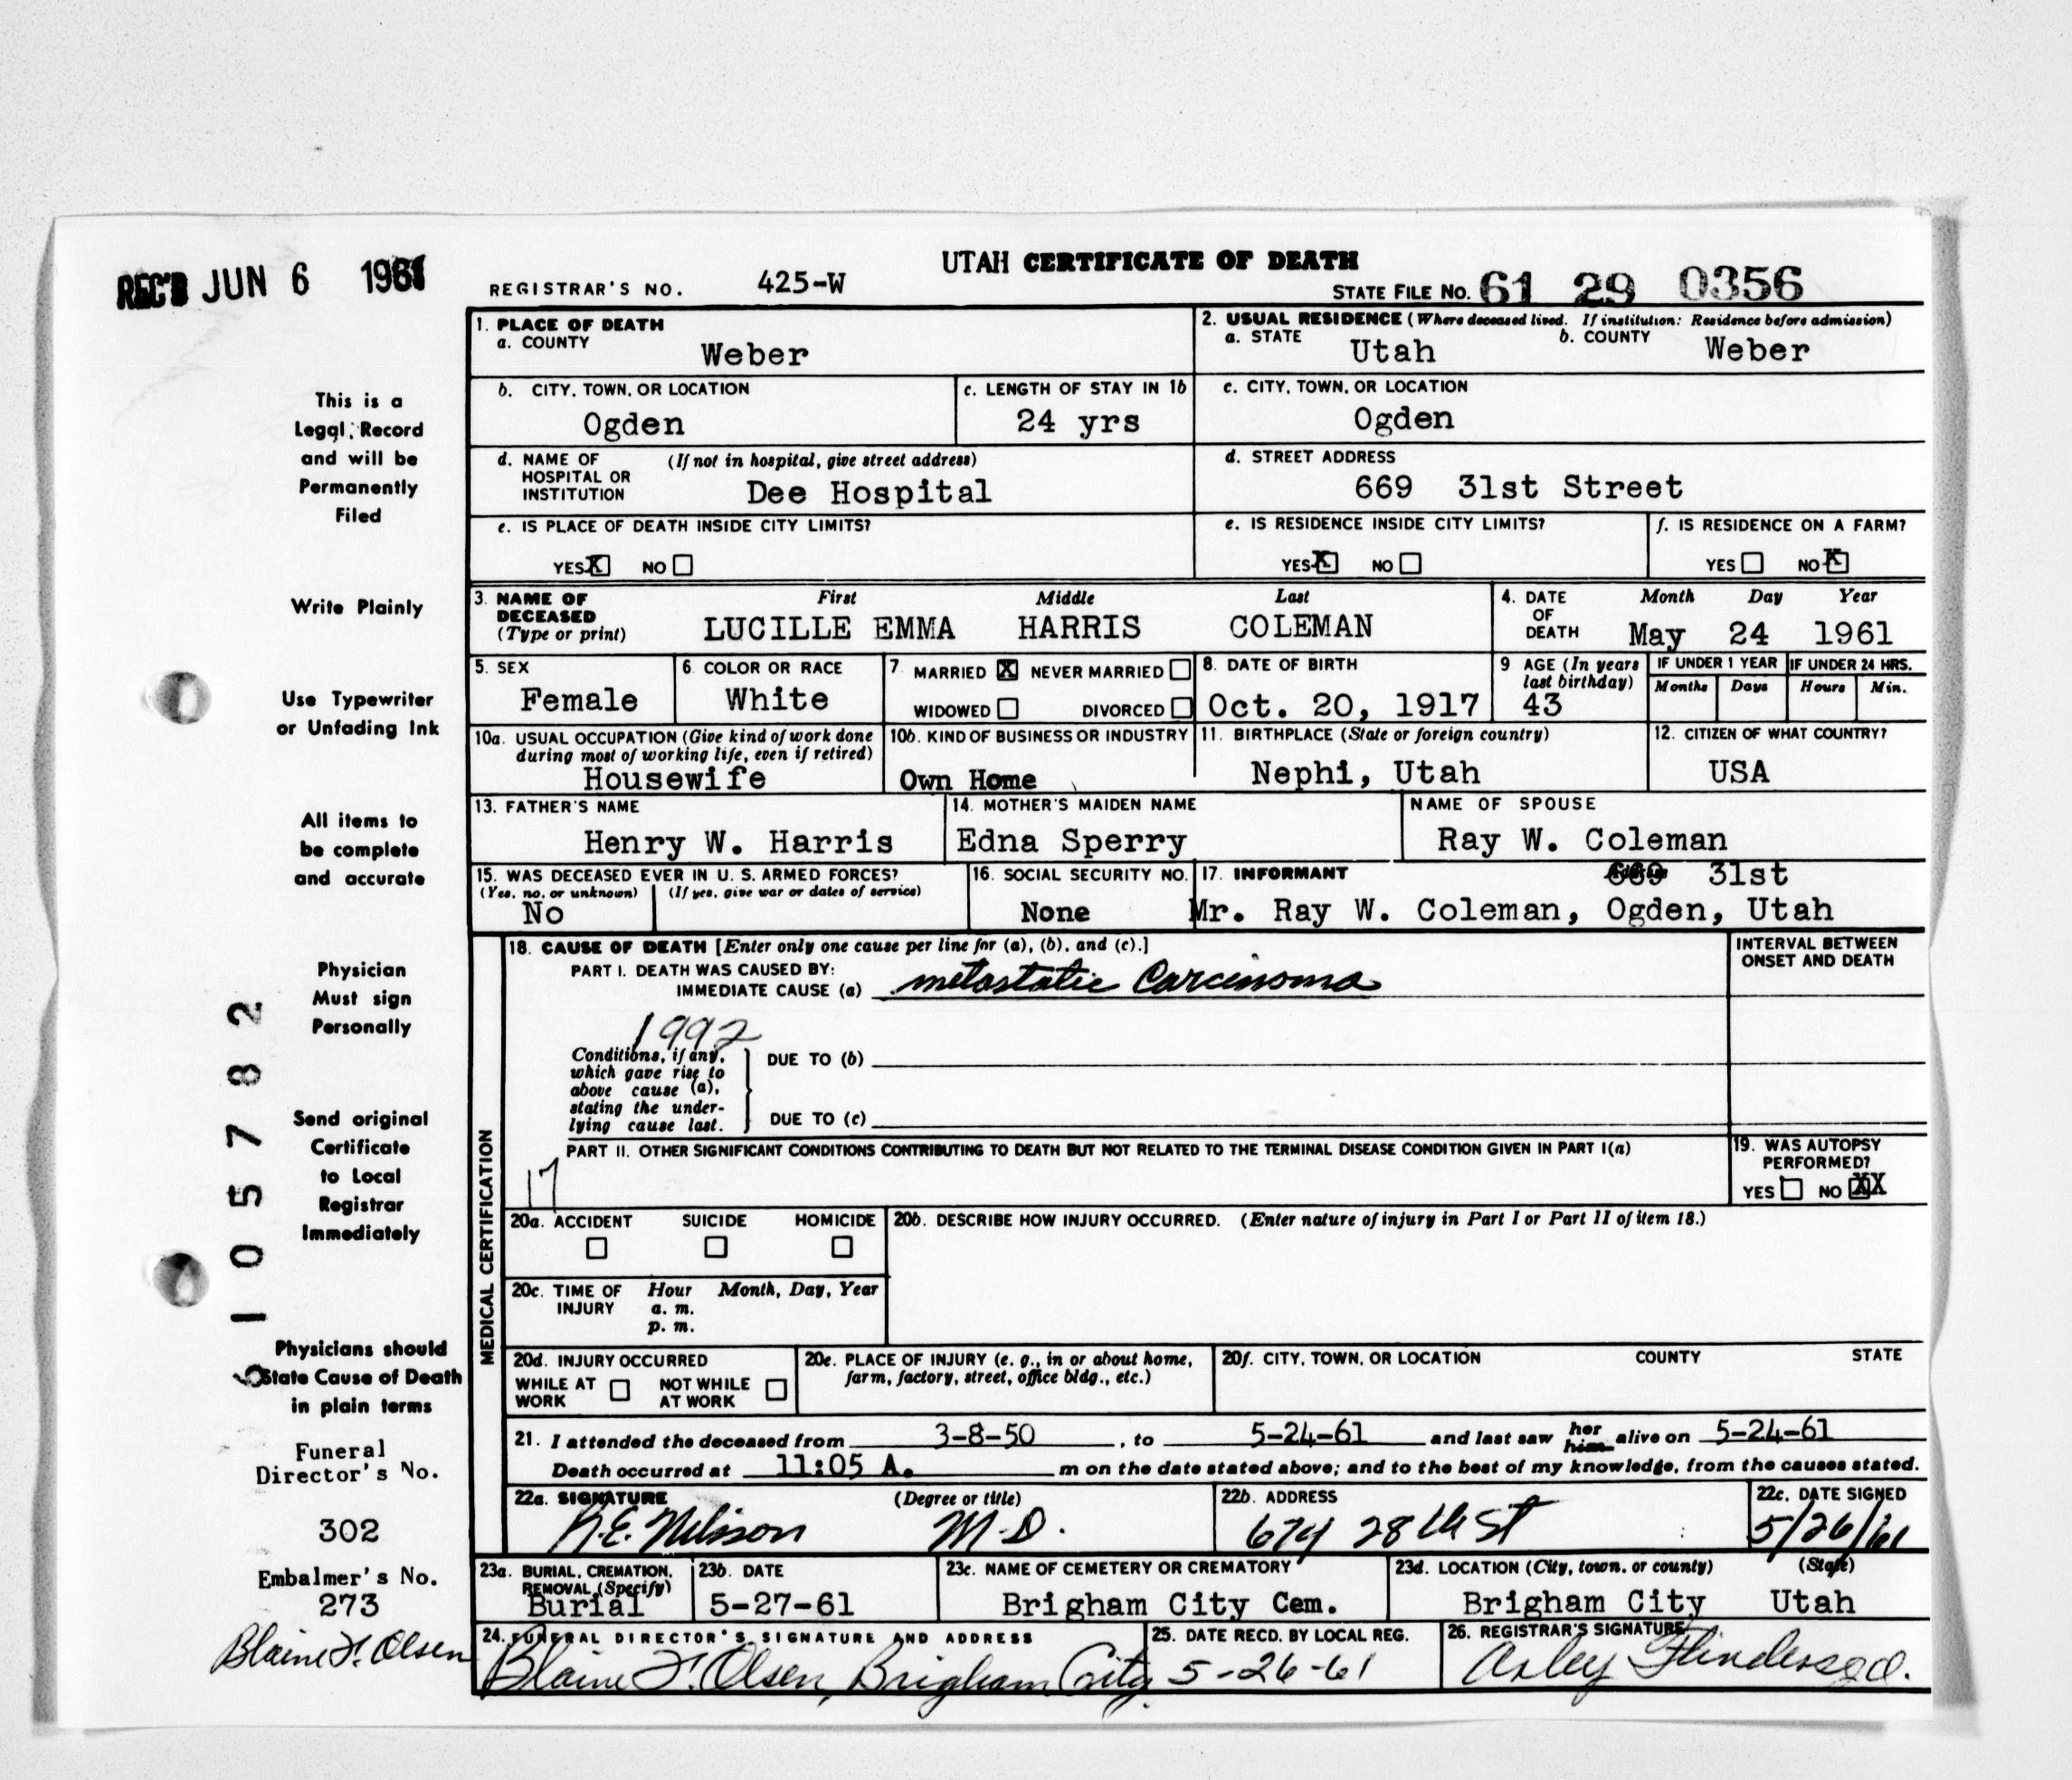 UTAH CERTIFICATE OF DEATH
REC'D JUN 6 1961
REGISTRAR'S NO. 425-W
STATE FILE No. 61 29 0356
1. PLACE OF DEATH
a. COUNTY
Weber
2. USUAL RESIDENCE (Where deceased lived. If institution: Residence before admission)
a. STATE Utah b. COUNTY Weber
b. CITY, TOWN, OR LOCATION
Ogden
c. LENGTH OF STAY IN 1b
24 yrs
c. CITY, TOWN, OR LOCATION
Ogden
d. NAME OF HOSPITAL OR INSTITUTION (If not in hospital, give street address)
Dee Hospital
d. STREET ADDRESS
669 31st Street
e. IS PLACE OF DEATH INSIDE CITY LIMITS?
YES X NO
e. IS RESIDENCE INSIDE CITY LIMITS?
YES X NO
f. IS RESIDENCE ON A FARM?
YES NO X
3. NAME OF DECEASED (Type or print)
First Middle Last
LUCILLE EMMA HARRIS COLEMAN
4. DATE OF DEATH
Month Day Year
May 24 1961
5. SEX
Female
6. COLOR OR RACE
White
7. MARRIED X NEVER MARRIED
WIDOWED DIVORCED
8. DATE OF BIRTH
Oct. 20, 1917
9 AGE (In years last birthday)
43
IF UNDER 1 YEAR
Months Days
IF UNDER 24 HRS.
Hours Min.
10a. USUAL OCCUPATION (Give kind of work done during most of working life, even if retired)
Housewife
10b. KIND OF BUSINESS OR INDUSTRY
Own Home
11. BIRTHPLACE (State or foreign country)
Nephi, Utah
12. CITIZEN OF WHAT COUNTRY?
USA
13. FATHER'S NAME
Henry W. Harris
14. MOTHER'S MAIDEN NAME
Edna Sperry
NAME OF SPOUSE
Ray W. Coleman
15. WAS DECEASED EVER IN U. S. ARMED FORCES?
(Yes, no, or unknown) (If yes, give war or dates of service)
No
16. SOCIAL SECURITY NO.
None
17. INFORMANT
669 31st
Mr. Ray W. Coleman, Ogden, Utah
MEDICAL CERTIFICATION
18. CAUSE OF DEATH [Enter only one cause per line for (a), (b), and (c).]
PART I. DEATH WAS CAUSED BY:
IMMEDIATE CAUSE (a) metastatic Carcinoma
INTERVAL BETWEEN ONSET AND DEATH
1992
Conditions, if any, which gave rise to above cause (a), stating the underlying cause last.
DUE TO (b)
DUE TO (c)
PART II. OTHER SIGNIFICANT CONDITIONS CONTRIBUTING TO DEATH BUT NOT RELATED TO THE TERMINAL DISEASE CONDITION GIVEN IN PART I(a)
17
19. WAS AUTOPSY PERFORMED?
YES NO XX
20a. ACCIDENT SUICIDE HOMICIDE
20b. DESCRIBE HOW INJURY OCCURRED. (Enter nature of injury in Part I or Part II of item 18.)
20c. TIME OF INJURY Hour Month, Day, Year
a. m.
p. m.
20d. INJURY OCCURRED
WHILE AT WORK NOT WHILE AT WORK
20e. PLACE OF INJURY (e. g., in or about home, farm, factory, street, office bldg., etc.)
20f. CITY, TOWN, OR LOCATION COUNTY STATE
21. I attended the deceased from 3-8-50, to 5-24-61 and last saw her him alive on 5-24-61
Death occurred at 11:05 A. m on the date stated above; and to the best of my knowledge, from the causes stated.
22a. SIGNATURE (Degree or title)
M.D.
22b. ADDRESS
674 28th St
22c. DATE SIGNED
5/26/61
23a. BURIAL, CREMATION, REMOVAL (Specify)
Burial
23b. DATE
5-27-61
23c. NAME OF CEMETERY OR CREMATORY
Brigham City Cem.
23d. LOCATION (City, town, or county) (State)
Brigham City Utah
24. FUNERAL DIRECTOR'S SIGNATURE AND ADDRESS
Blaine F. Olsen, Brigham City
25. DATE RECD. BY LOCAL REG.
5-26-61
26. REGISTRAR'S SIGNATURE
This is a
Legal Record
and will be
Permanently
Filed
Write Plainly
Use Typewriter
or Unfading Ink
All items to
be complete
and accurate
Physician
Must sign
Personally
Send original
Certificate
to Local
Registrar
Immediately
Physicians should
State Cause of Death
in plain terms
Funeral
Director's No.
302
Embalmer's No.
273
Blaine F. Olsen
6105782